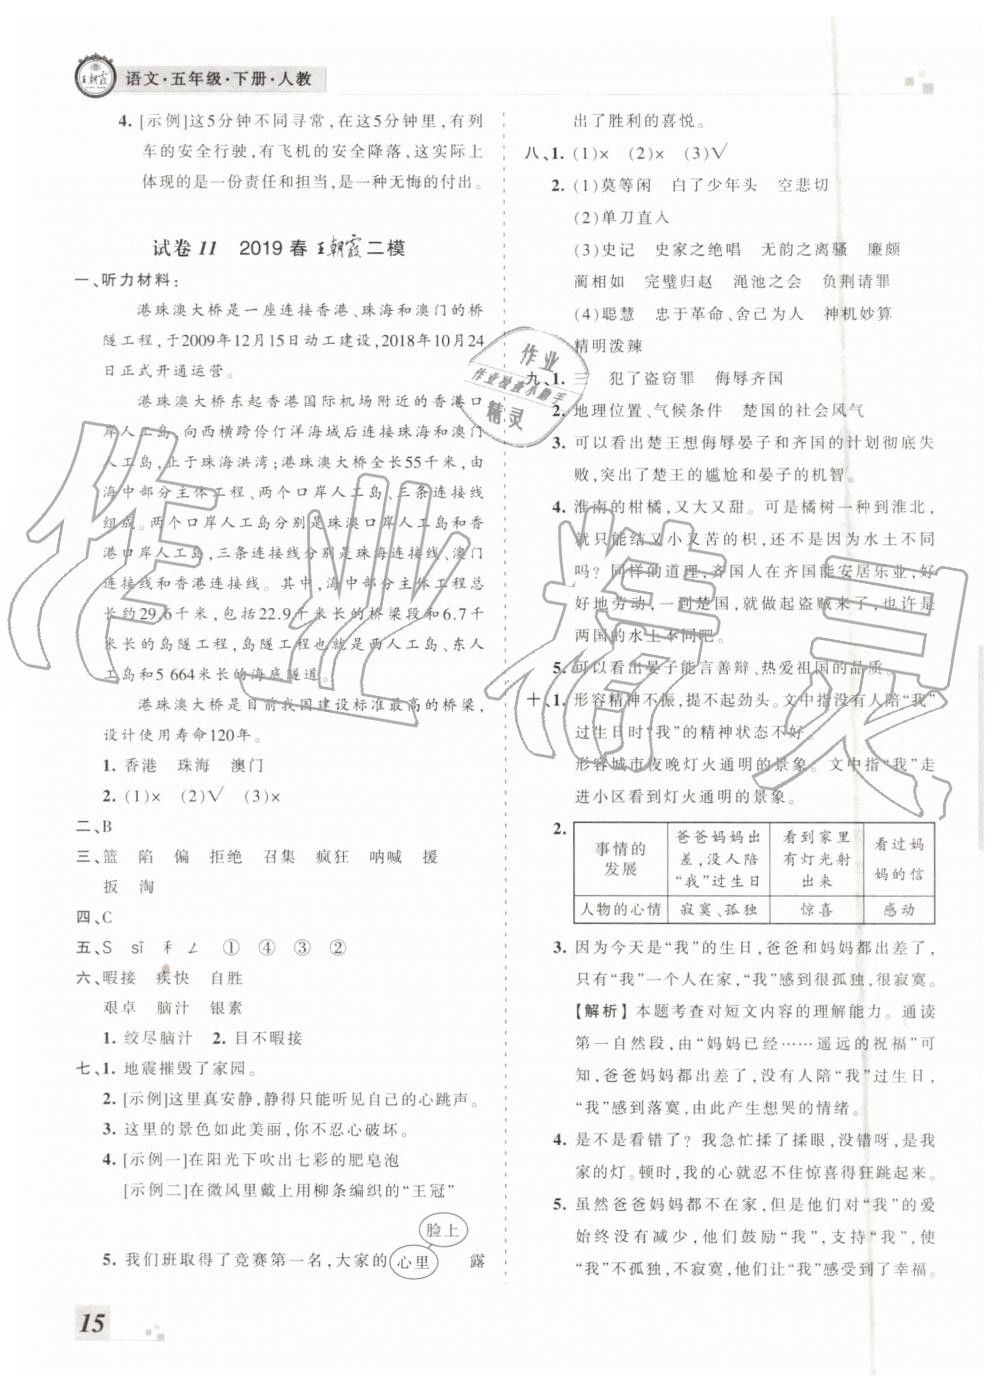 王朝霞
语文·五年级·下册·人教
4. [示例]这5分钟不同寻常,在这5分钟里,有列
车的安全行驶,有飞机的安全降落,这实际上
体现的是一份责任和担当,是一种无悔的付出。
试卷11 2019春王朝霞二模
一、听力材料:
港珠澳大桥是一座连接香港、珠海和澳门的桥
隧工程,于2009年12月15日动工建设,2018年10月24
日正式开通运营。
港珠澳大桥东起香港国际机场附近的香港口
岸人工岛,向西横跨伶仃洋海域后连接珠海和澳门
人工岛,止于珠海洪湾;港珠澳大桥全长55千米,由
海中部分主体工程、两个口岸人工岛、三条连接线
组成。两个口岸人工岛分别是珠澳口岸人工岛和香
港口岸人工岛,三条连接线分别是珠海连接线、澳门
连接线和香港连接线。其中,海中部分主体工程总
长约29.6千米,包括22.9千米长的桥梁段和6.7千
米长的岛隧工程,岛隧工程也就是西人工岛、东人
工岛和5 664米长的海底隧道。
港珠澳大桥是目前我国建设标准最高的桥梁,
设计使用寿命120年。
1. 香港 珠海 澳门
2. (1)× (2)√ (3)×
二、B
三、篮 陷 偏 拒绝 召集 疯狂 呐喊 援
扳 淘
四、C
五、S sī 禾 ㄥ ① ④ ③ ②
六、暇接 疾快 自胜
艰卓 脑汁 银素
1. 绞尽脑汁 2. 目不暇接
七、1. 地震摧毁了家园。
2. [示例]这里真安静,静得只能听见自己的心跳声。
3. 这里的景色如此美丽,你不忍心破坏。
4. [示例一]在阳光下吹出七彩的肥皂泡
[示例二]在微风里戴上用柳条编织的“王冠”
脸上
5. 我们班取得了竞赛第一名,大家的心里 露
15
出了胜利的喜悦。
八、1. (1)× (2)× (3)√
2. (1)莫等闲 白了少年头 空悲切
(2)单刀直入
(3)史记 史家之绝唱 无韵之离骚 廉颇
蔺相如 完璧归赵 渑池之会 负荆请罪
(4)聪慧 忠于革命、舍己为人 神机妙算
精明泼辣
九、1. 三 犯了盗窃罪 侮辱齐国
2. 地理位置、气候条件 楚国的社会风气
3. 可以看出楚王想侮辱晏子和齐国的计划彻底失
败,突出了楚王的尴尬和晏子的机智。
4. 淮南的柑橘,又大又甜。可是橘树一种到淮北,
就只能结又小又苦的枳,还不是因为水土不同
吗?同样的道理,齐国人在齐国能安居乐业,好
好地劳动,一到楚国,就做起盗贼来了,也许是
两国的水土不同吧。
5. 可以看出晏子能言善辩、热爱祖国的品质。
十、1. 形容精神不振,提不起劲头。文中指没有人陪“我”
过生日时“我”的精神状态不好。
形容城市夜晚灯火通明的景象。文中指“我”走
进小区看到灯火通明的景象。
2. 事情的发展 爸爸妈妈出差,没人陪“我”过生日 看到家里有灯光射出来 看过妈妈的信
人物的心情 寂寞、孤独 惊喜 感动
3. 因为今天是“我”的生日,爸爸和妈妈都出差了,
只有“我”一个人在家,“我”感到很孤独,很寂寞。
【解析】本题考查对短文内容的理解能力。通读
第一自然段,由“妈妈已经……遥远的祝福”可
知,爸爸妈妈都出差了,没有人陪“我”过生日,
“我”感到落寞,由此产生想哭的情绪。
4. 是不是看错了?我急忙揉了揉眼,没错呀,是我
家的灯。顿时,我的心就忍不住惊喜得狂跳起来。
5. 虽然爸爸妈妈都不在家,但是他们对“我”的爱
始终没有减少,他们鼓励“我”,支持“我”,使
“我”不孤独,不寂寞,他们让“我”感受到了幸福。
作业
作业检查小助手
精灵
作业精灵